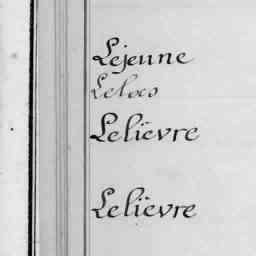 Lejeune
Lelos
Lelièvre
Lelièvre